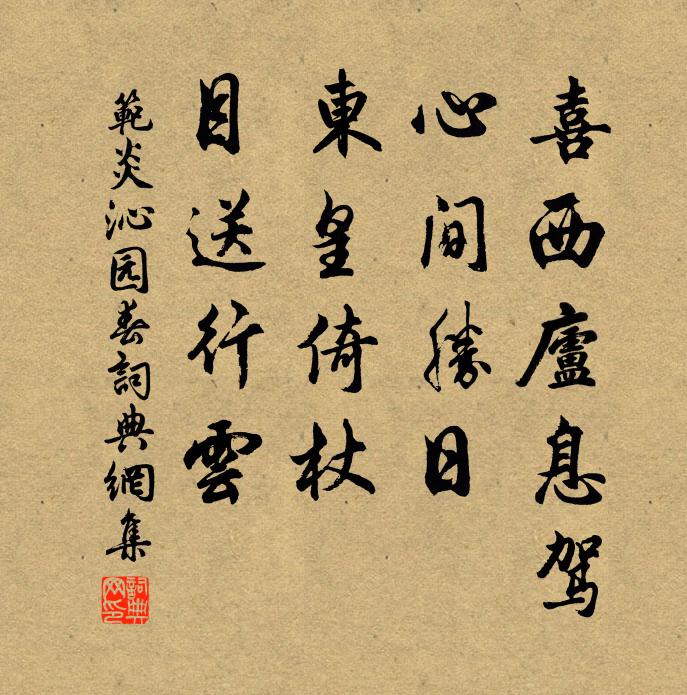 喜西廬息駕
心間勝日
東皇倚杖
目送行雲
範炎沁园春詞典網集
詞典网印